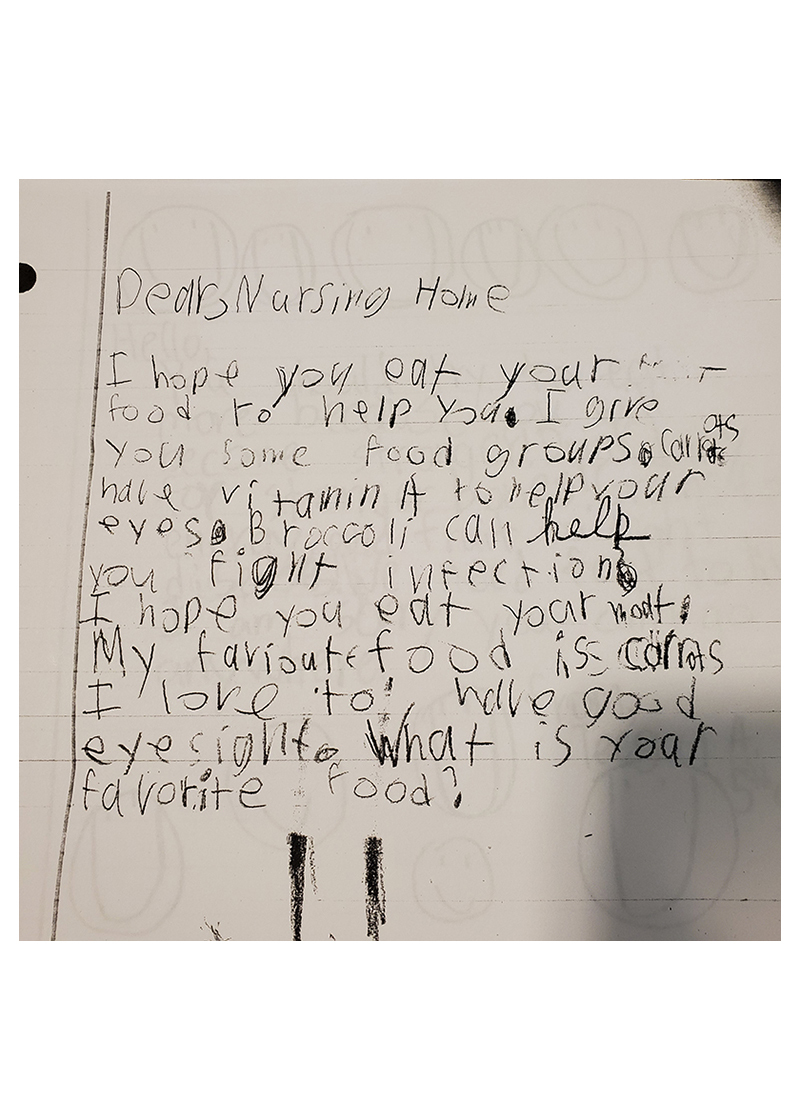 Dear, Nursing Home
I hope you eat your
food to help you. I give
you some food groups. Carrots
have vitamin A to help your
eyes. Broccoli can help
you fight infection
I hope you eat your
My favioute food is carrots
I love to have good
eyesight. What is your
favorite food?